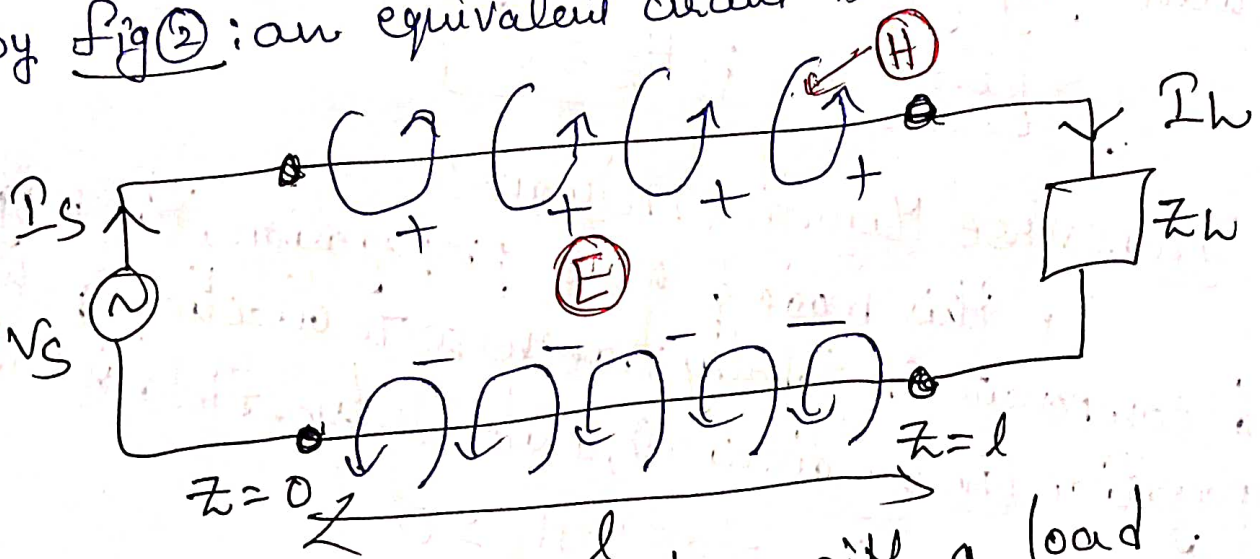 by fig ② : an equivalent
H
I_L
I_S
+ + + +
Z_L
E
V_S
- - - -
Z=0
Z=l
l
with a load.